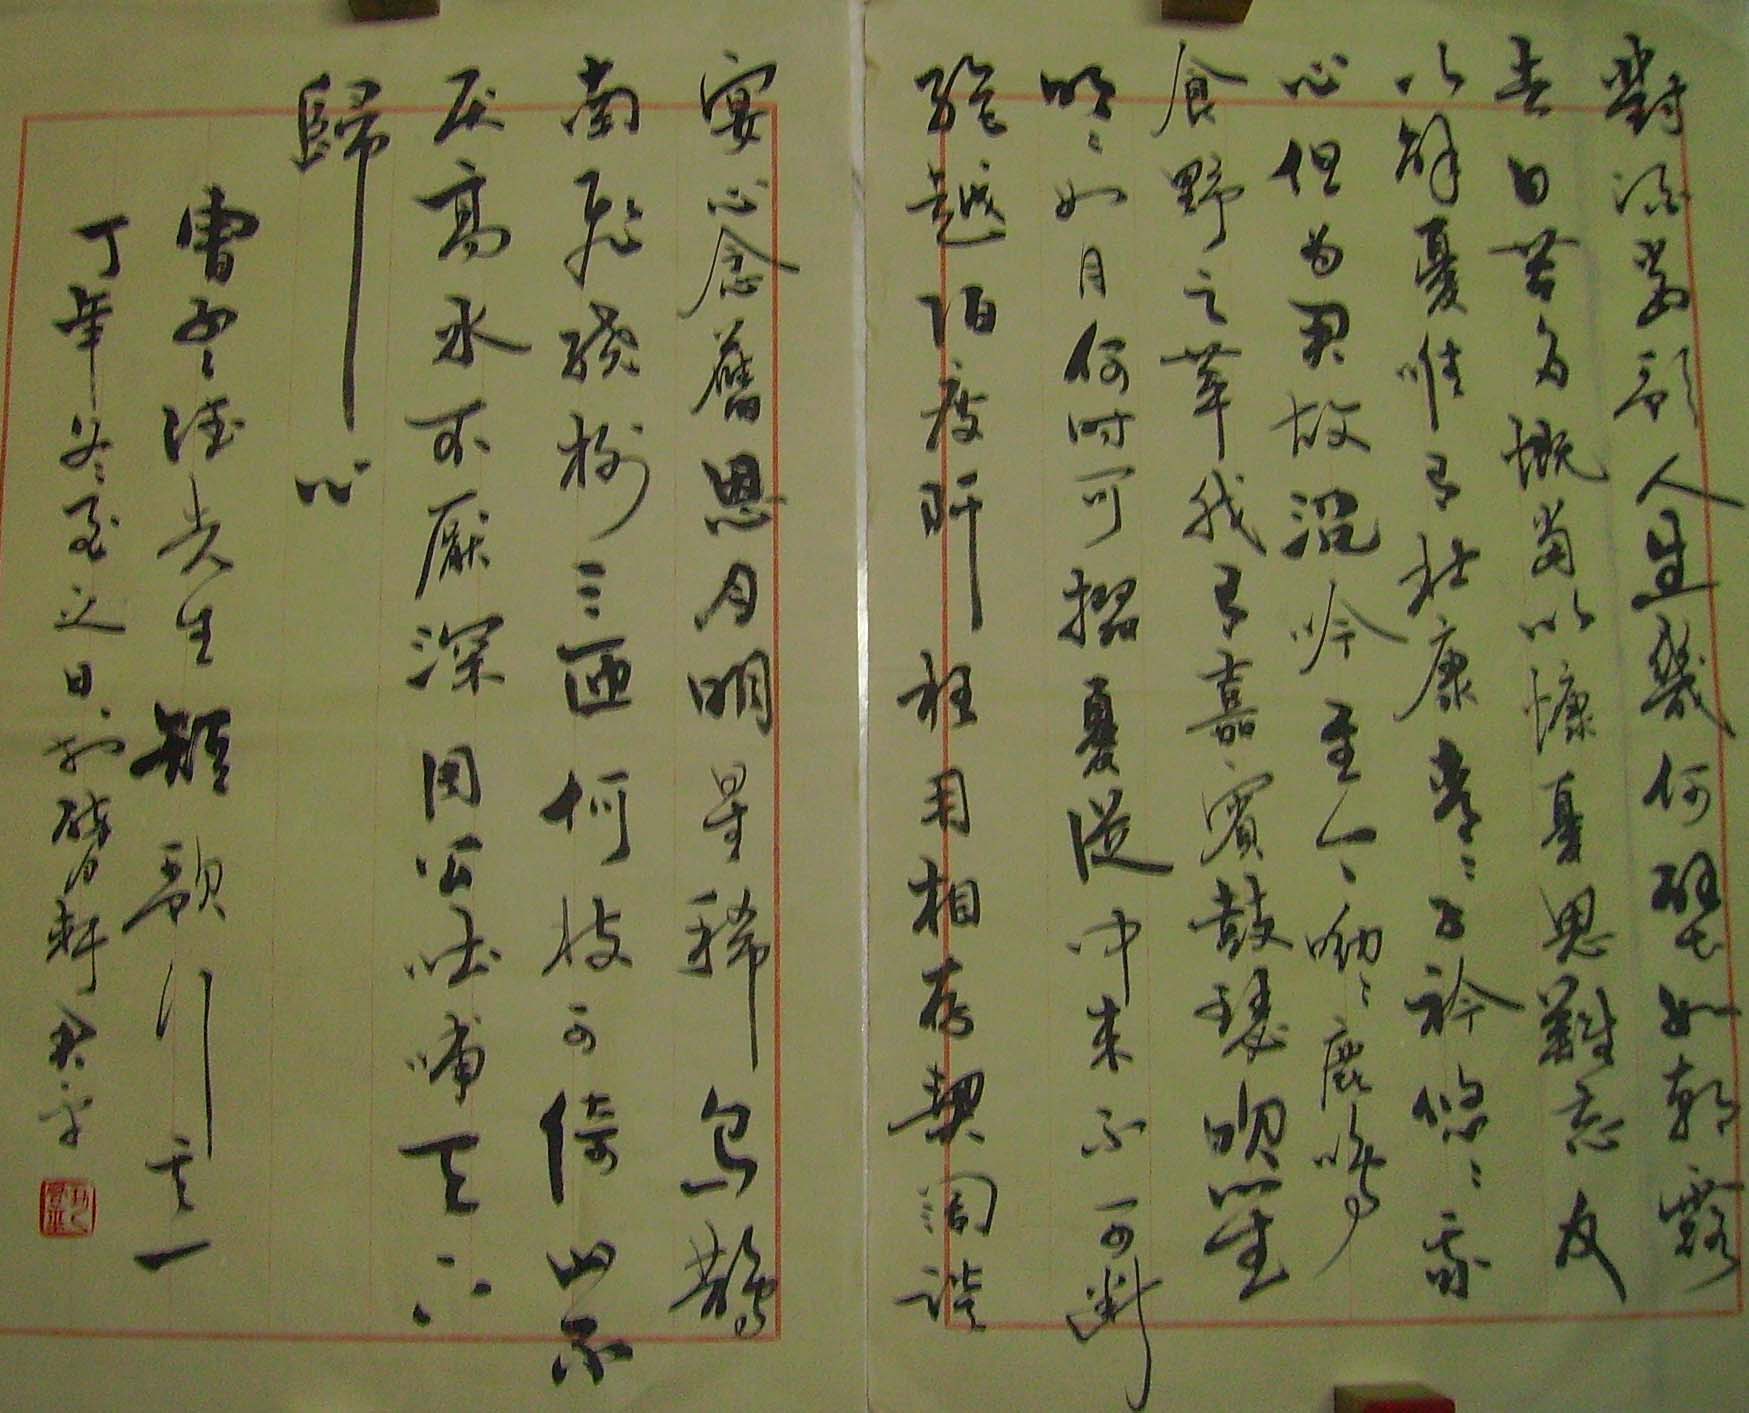 對酒當歌人生幾何譬如朝露
去日苦多慨當以慷憂思難忘友
以解憂唯有杜康青〻子衿悠〻我
心但为君故沉吟至今呦〻鹿鳴
食野之苹我有嘉賓鼓瑟吹笙
明〻如月何时可掇憂從中来不可断
越陌度阡枉用相存契闊談
宴心念舊恩月明星稀烏鵲
南飛繞樹三匝何枝可倚山不
厌高水不厭深周公吐哺天下
歸心
曹孟德先生短歌行其一
丁年冬至之日於軒